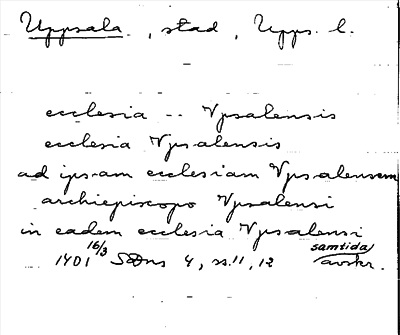 Uppsala, stad, Upps. l.
ecclesia -- Vpsalensis
ecclesia Vpsalensis
ad ipsam ecclesiam Vpsalensem
archiepiscopo Vpsalensi
in eadem ecclesia Vpsalensi
1401 16/3 SDns 4, ss. 11, 12 samtida avskr.